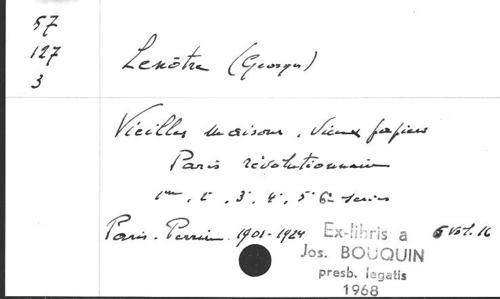 57
127
3
Lenôtre (Georges)
Vieilles maisons, vieux papiers
Paris révolutionnaire
1re, 2e, 3e, 4e, 5e 6e series
Paris. Perrin. 1901-1924 6 vol. 16
Ex-libris a
Jos. BOUQUIN
presb. legatis
1968